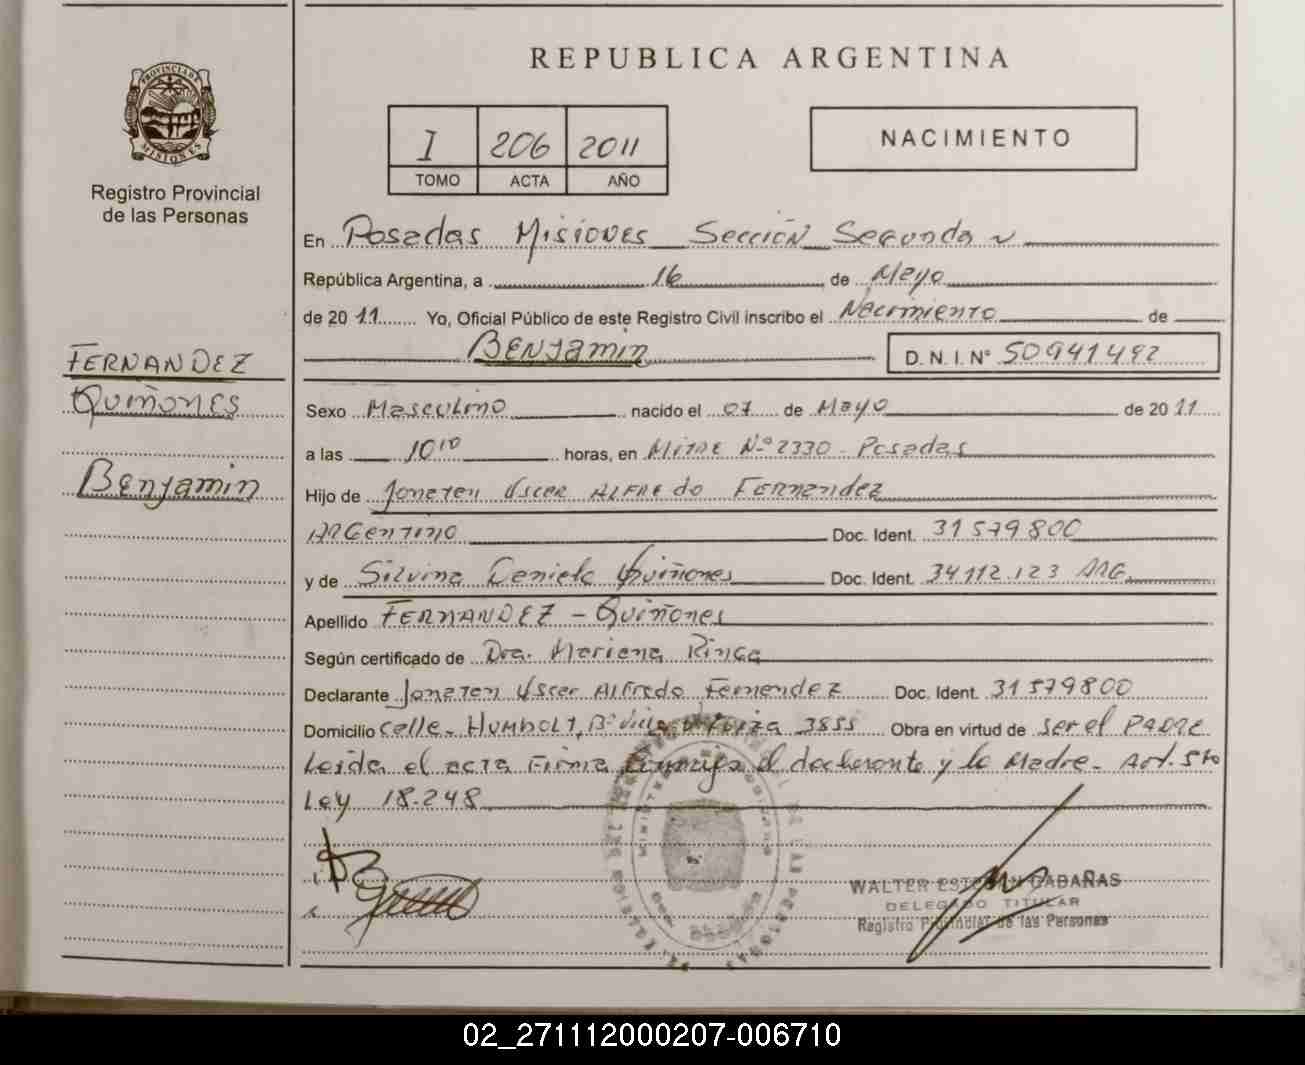 REPUBLICA ARGENTINA
PROVINCIA DE
MISIONES
Registro Provincial
de las Personas
I 206 2011
TOMO ACTA AÑO
NACIMIENTO
En Posadas Misiones Sección Segunda
República Argentina, a 16 de Mayo
de 20 11 Yo, Oficial Público de este Registro Civil inscribo el Nacimiento de
Benjamin D.N.I.Nº 50941492
FERNANDEZ
Quiñones
Benjamin
Sexo Masculino nacido el 07 de Mayo de 20 11
a las 10 10 horas, en Mitre Nº 2330 - Posadas
Hijo de Jonaten Uscer ALFREdo Fernandez
ARGentino Doc. Ident. 31579800
y de Silvina Daniela Quiñones Doc. Ident. 34112.123 ARG.
Apellido FERNANDEZ - Quiñones
Según certificado de Dra. Mariena
Declarante Jonaten Uscer Alfredo Fernandez Doc. Ident. 31579800
Domicilio calle. HUMBOLT, Bº 3855 Obra en virtud de ser el PADRE
Leida el acta Firma conmigo el declarante y la Madre. Art. 5to
Ley 18.248
WALTER ESTEBAN CABAÑAS
DELEGADO TITULAR
Registro Provincial de las Personas
02_271112000207-006710